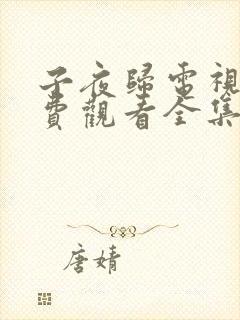 子夜歸電視
費觀看全集
唐婧